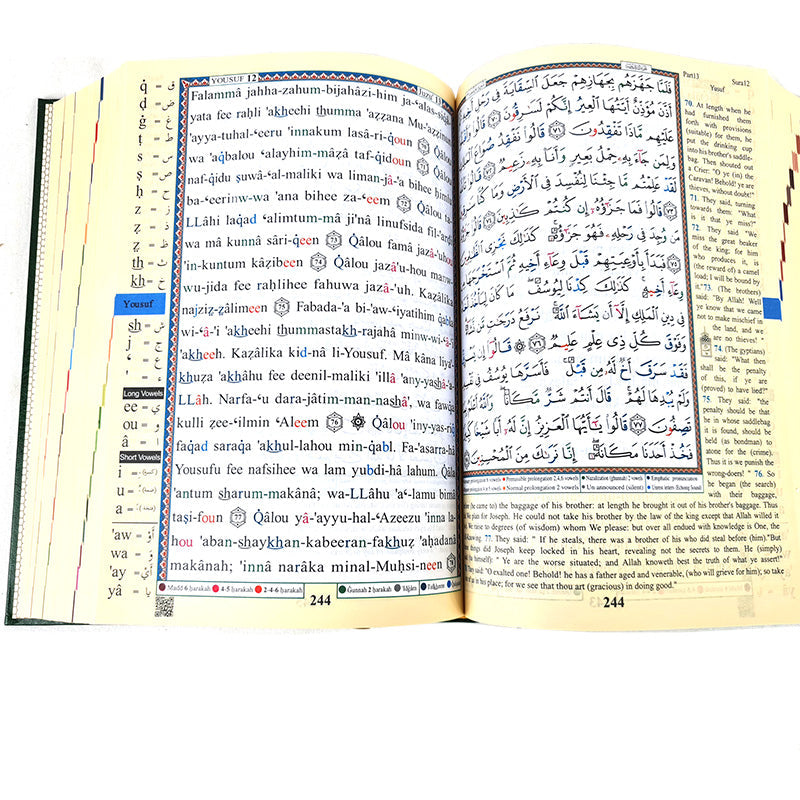 YOUSUF 12
Juzu' 13
Falammâ jahhazahum-bijahâzi-him ja-'alas-siqâ
yata fee raḥli 'akheehi thumma 'azzana Mu-'azzi
'ayya-tuhal-'eeru 'innakum lasâ-ri-qoun 70
wa 'aqbalou 'alayhim-mâẓâ taf-qidoun 71
naf-qidu ṣuwâ-'al-maliki wa liman-jâ-'a bihee ḥim
ba-'eerin-w-wa 'ana bihee za-'eem 72
LLâhi laqad 'alimtum-mâ ji'nâ linufsida fil-'arḍ
wa mâ kunnâ sâri-qeen 73 Qâlou famâ jazâ-'uhou
'in-kuntum kâẓibeen 74 Qâlou jazâ'u-hou man-
wu-jida fee raḥlihee fahuwa jazâ-'uh. Kaẓâlika
najziẓ-ẓâlimeen 75 Fabada-'a bi-'aw-'iyatihim qabla
wi-'â-'i 'akheehi thummastakh-rajahâ minw-wi-'â-'i
'akheeh. Kaẓâlika kid-nâ li-Yousuf. Mâ kâna liya'-
khuẓa 'akhâhu fee deenil-maliki 'illâ 'any-yashâ-'a-
LLâh. Narfa-'u dara-jâtim-man-nashâ', wa fawqa
kulli ẓee-'ilmin 'Aleem 76 Qâlou 'iny-yas-riq
faqad saraqa 'akhul-lahou min-qabl. Fa'asarra-hâ
Yousufu fee nafsihee wa lam yubdi-hâ lahum. Qâla
'antum sharum-makânâ; wa-LLâhu 'a'-lamu bimâ
taṣi-foun 77 Qâlou yâ-'ayyu-hal-'Azeezu 'inna la-
hou 'aban-shaykhan-kabeeran-fakhuẓ 'aḥadanâ
makânah; 'innâ narâka minal-Muḥsi-neen 78
q̇ = ق
ḍ = ض
ġ = غ
ṭ = ط
ṣ = ص
ḥ = ح
z = ز
ẓ = ظ
ẓ = ذ
th = ث
kh = خ
Yousuf
sh = ش
j = ج
' = ع
' = ء
Long Vowels
ee =
ou =
â =
Short Vowels
i =
u =
a =
'aw = أو
wa = و
'ay = أي
yâ = يا
Madd 6 ḥarakah 4-5 ḥarakah 2-4-6 ḥarakah Ġunnah 2 ḥarakah Tafkheem
244
Part13 Sura12
Yusuf
فَلَمَّا جَهَّزَهُم بِجَهَازِهِمْ جَعَلَ ٱلسِّقَايَةَ فِى رَحْلِ
أَذَّنَ مُؤَذِّنٌ أَيَّتُهَا ٱلْعِيرُ إِنَّكُمْ لَسَٰرِقُونَ ٧٠ قَالُوا۟
عَلَيْهِم مَّاذَا تَفْقِدُونَ ٧١ قَالُوا۟ نَفْقِدُ صُوَاعَ
وَلِمَن جَآءَ بِهِۦ حِمْلُ بَعِيرٍ وَأَنَا۠ بِهِۦ زَعِيمٌ ٧٢
لَقَدْ عَلِمْتُم مَّا جِئْنَا لِنُفْسِدَ فِى ٱلْأَرْضِ وَمَا كُنَّا
٧٣ قَالُوا۟ فَمَا جَزَٰٓؤُهُۥٓ إِن كُنتُمْ كَٰذِبِينَ ٧٤
مَن وُجِدَ فِى رَحْلِهِۦ فَهُوَ جَزَٰٓؤُهُۥ كَذَٰلِكَ نَجْزِى
٧٥ فَبَدَأَ بِأَوْعِيَتِهِمْ قَبْلَ وِعَآءِ أَخِيهِ ثُمَّ ٱسْتَخْرَجَهَا
وِعَآءِ أَخِيهِ كَذَٰلِكَ كِدْنَا لِيُوسُفَ مَا كَانَ
فِى دِينِ ٱلْمَلِكِ إِلَّآ أَن يَشَآءَ ٱللَّهُ نَرْفَعُ دَرَجَٰتٍ
وَفَوْقَ كُلِّ ذِى عِلْمٍ عَلِيمٌ ٧٦ قَالُوٓا۟ إِن
فَقَدْ سَرَقَ أَخٌ لَّهُۥ مِن قَبْلُ فَأَسَرَّهَا يُوسُفُ
وَلَمْ يُبْدِهَا لَهُمْ قَالَ أَنتُمْ شَرٌّ مَّكَانًا وَٱللَّهُ أَعْلَمُ
تَصِفُونَ ٧٧ قَالُوا۟ يَٰٓأَيُّهَا ٱلْعَزِيزُ إِنَّ لَهُۥٓ أَبًا شَيْخًا
فَخُذْ أَحَدَنَا مَكَانَهُۥٓ إِنَّا نَرَىٰكَ مِنَ ٱلْمُحْسِنِينَ
Permissible prolongation 2,4,6 vowels Nazalization (ghunnah) 2 vowels Emphatic pronunciation
Normal prolongation 2 vowels Un announced (silent)
70. At length when he
had furnished them
forth with provisions
(suitable) for them, he
put the drinking cup
into his brother's saddle-
bag. Then shouted out
a Crier: "O ye (in) the
Caravan! Behold! ye are
thieves, without doubt!"
71. They said, turning
towards them: "What
is it that ye miss?"
72. They said "We
miss the great beaker
of the king; for him
who produces it, is
(the reward of) a camel
load; I will be bound by
it."73. (The brothers)
said: "By Allah! Well
ye know that we came
not to make mischief in
the land, and we
are no thieves! "
74. (The gyptians)
said: "What then
shall be the penalty
of this, if ye are
(proved) to have lied?"
75. They said: "the
penalty should be that
he in whose saddle-bag
it is found, should be
held (as bondman) to
atone for the (crime).
Thus it is we punish the
wrong-doers! " 76. So
he began (the search)
with their baggage,
(he came to) the baggage of his brother: at length he brought it out of his brother's baggage. Thus
We plan for Joseph. He could not take his brother by the law of the king except that Allah willed it
We raise to degrees (of wisdom) whom We please: but over all endued with knowledge is One, the
Knowing. 77. They said: " If he steals, there was a brother of his who did steal before (him)."But
things did Joseph keep locked in his heart, revealing not the secrets to them. He (simply)
to himself): " Ye are the worse situated; and Allah knoweth best the truth of what ye assert!"
They said: "O exalted one! Behold! he has a father aged and venerable, (who will grieve for him); so take
of us in his place; for we see that thou art (gracious) in doing good."
244